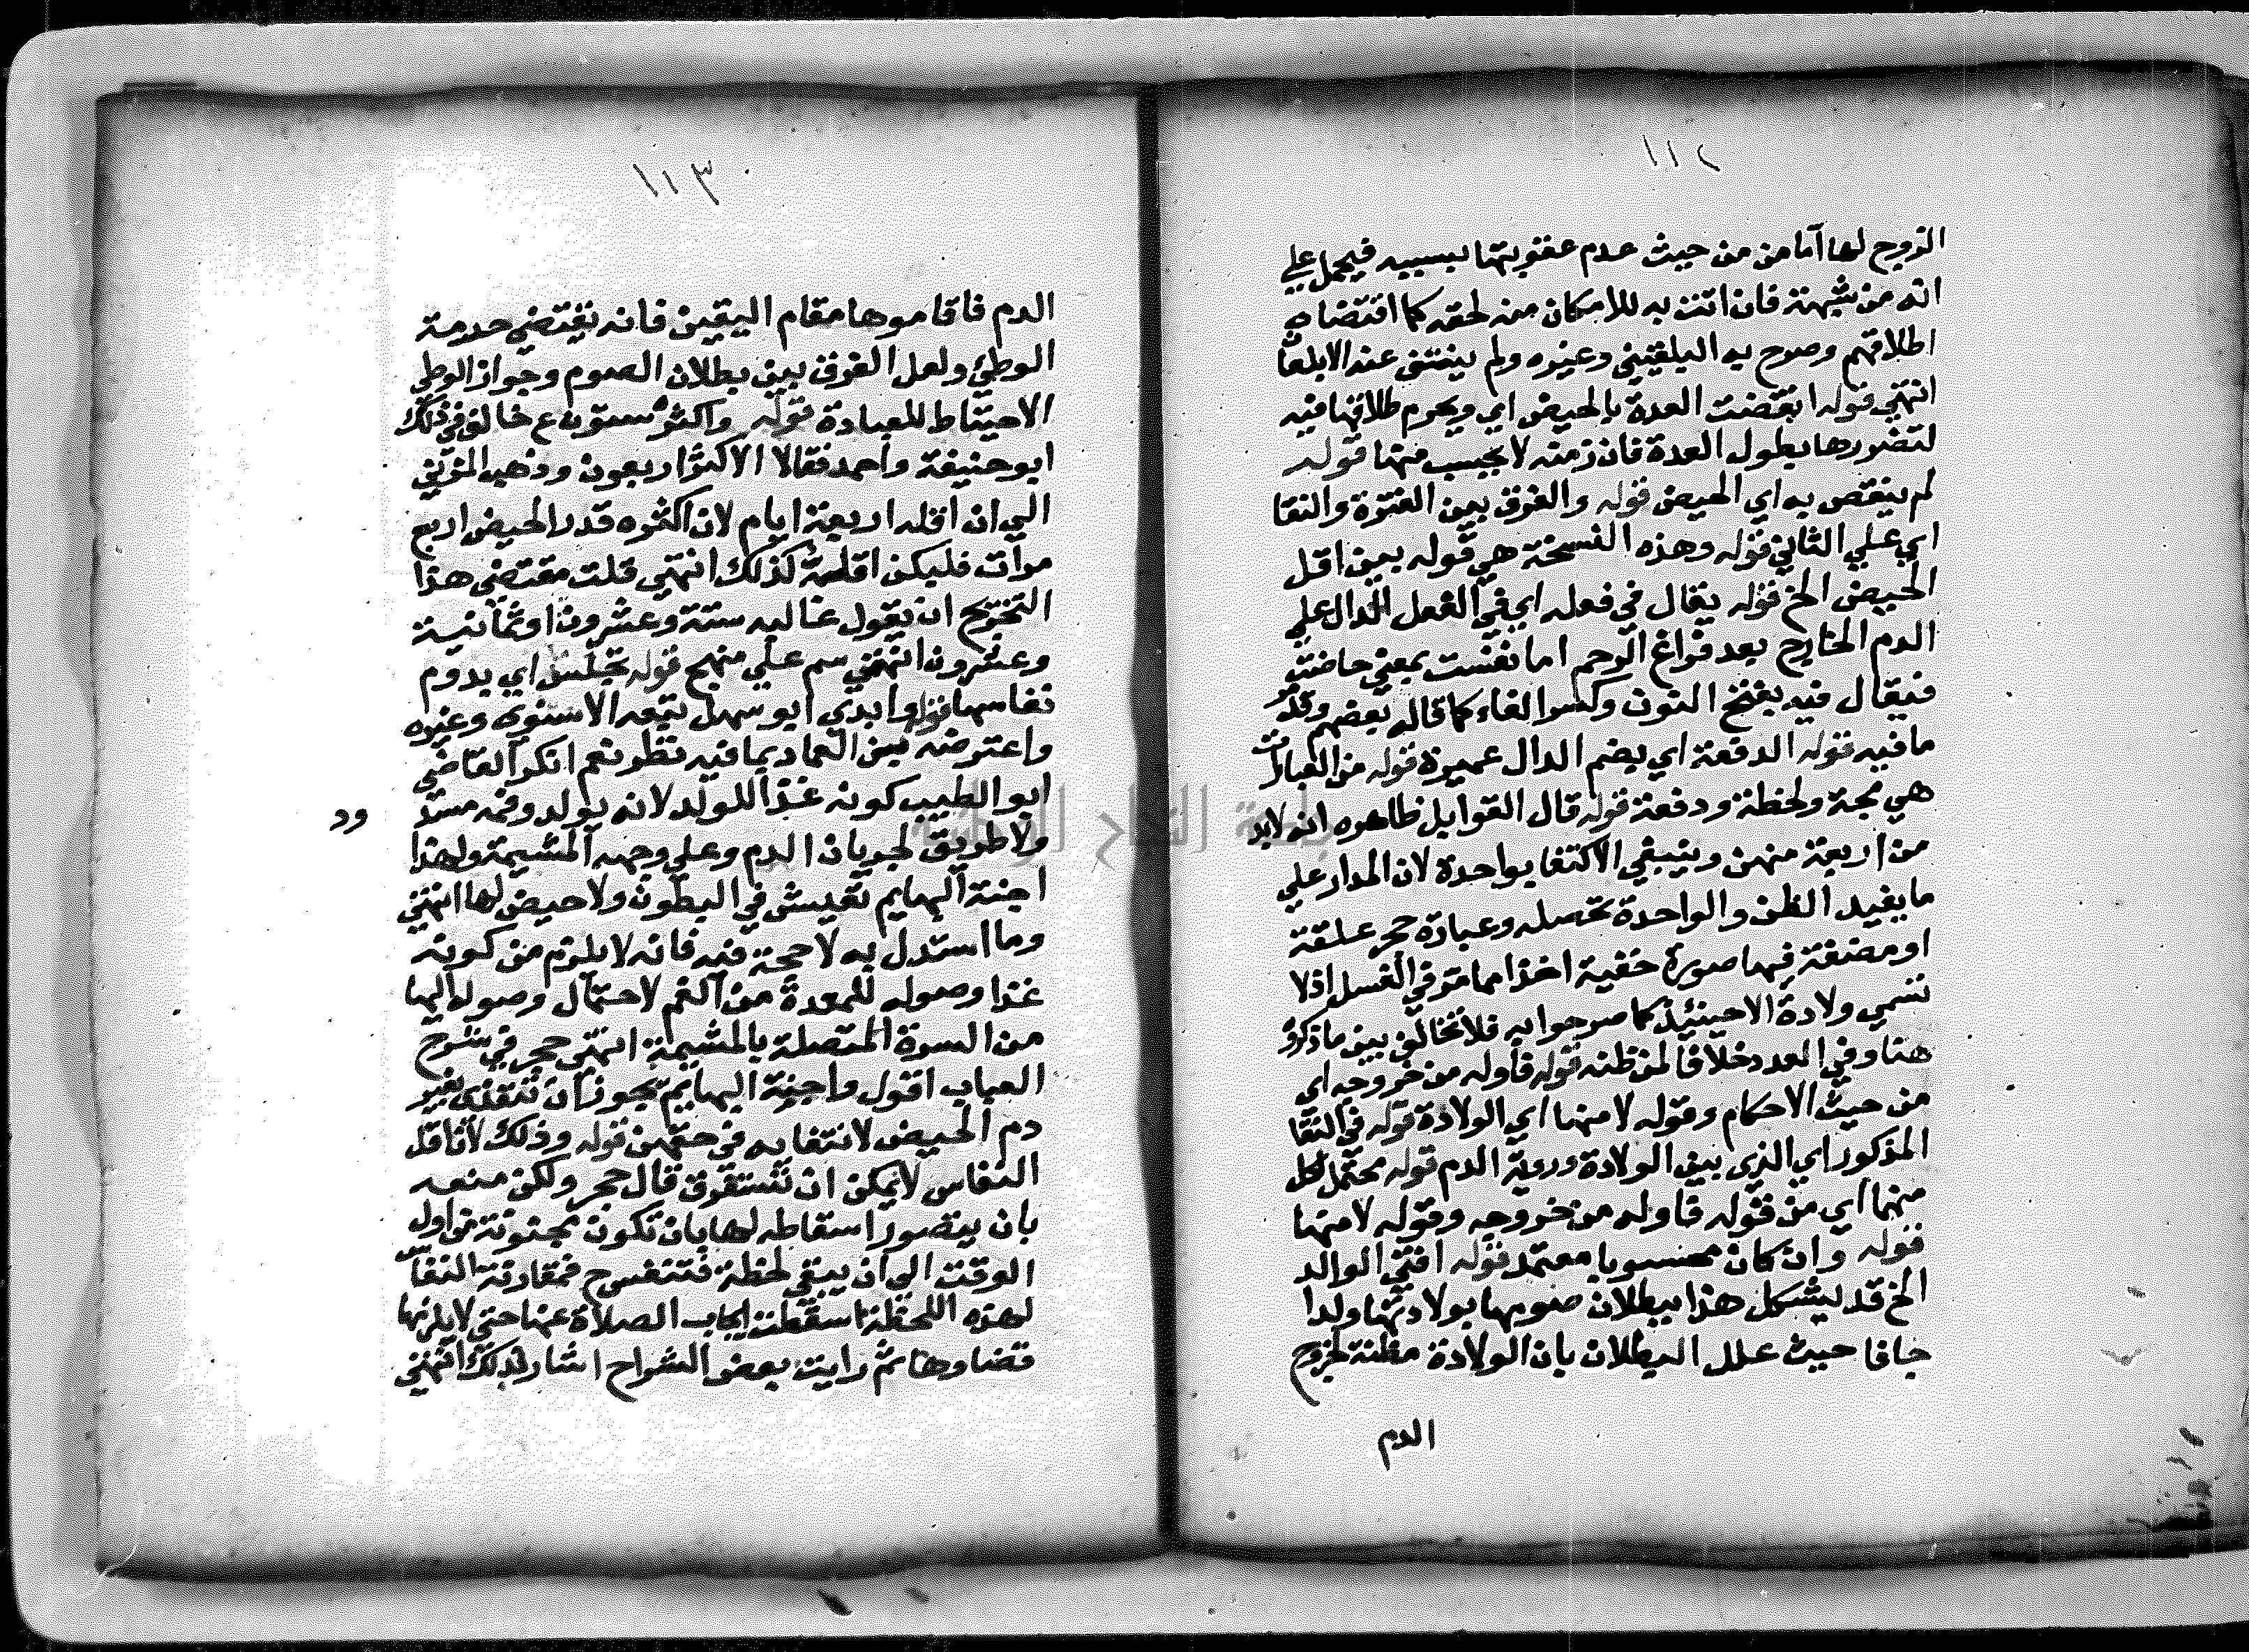 ١١٢
الزوج لها آما من من حيث عدم عقوبتها بسببه فيحمل علي
انه من شبهة فان اتت به للامكان منه لحقه كما اقتضاه
اطلاقهم وصرح به البلقيني وغيره ولم ينتف عنه الا بلعا
انتهي قوله انقضت العدة بالحيض اي ويحرم طلاقها فيه
لتضررها بطول العدة فان زمنه لا يحسب منها قوله
لم ينقص به اي الحيض قوله والفرق بين الفترة والنقا
اي علي الثاني قوله وهذه النسخة هي قوله بين اقل
الحيض الخ قوله يقال في فعله اي في الفعل الدال علي
الدم الخارج بعد فراغ الرحم اما نفست بمعني حاضت
فيقال فيه بفتح النون وكسر الفاء كما قاله بعضهم وقد مر
ما فيه قوله الدفعة اي بضم الدال عميرة قوله من العبارات
هي مجة ولحظة ودفعة قوله قال القوابل ظاهره انه لابد
من اربعة منهن وينبغي الاكتفا بواحدة لان المدار علي
ما يفيد الظن والواحدة تحصله وعبارة حجر علقة
او مضغة فيها صورة خفية اخذا مما مر في الغسل اذ لا
تسمي ولادة الا حينئذ كما صرحوا به فلا تخالف بين ما ذكروه
هنا وفي العدد خلافا لمن ظنه قوله فاوله من خروجه اي
من حيث الاحكام وقوله لا منها اي الولادة قوله في النقا
المذكور اي الذي بين الولادة وروية الدم قوله محتمل لكل
منهما اي من قوله فاوله من خروجه وقوله لا منها
قوله وان كان محسوبا معتمد قوله افتي الوالد
الخ قد ليشكل هذا ببطلان صومها بولادتها ولدا
جافا حيث علل البطلان بان الولادة مظنة لخروج
الدم
١١٣
الدم فاقاموها مقام اليقين فانه يقتضي حرمة
الوطئ ولعل الفرق بين بطلان الصوم وجواز الوطي
الاحتياط للعبادة قوله واكثره ستون ع خالف في ذلك
ابو حنيفة واحمد فقالا الاكثر اربعون وذهب المزني
الي ان اقله اربعة ايام لان اكثره قدر الحيض اربع
مرات فليكن اقله كذلك انتهي قلت مقتضي هذا
التخريج ان يقول غالبه ستة وعشرون او ثمانية
وعشرون انتهي سم علي منهج قوله تجلس اي يدوم
نفاسها قوله وابدي ابو سهل تبعه الاسنوي وغيره
واعترضه بين العماد بما فيه نظر نعم انكر القاضي
ابو الطيب كونه غذآ للولد لانه يولد وفمه مسد
ود
ولا طريق لجريان الدم وعلي وجهه المشيمة ولهذا
اجنة البهايم تعيش في البطون ولا حيض لها انتهي
وما استدل به لا حجة فيه فانه لا يلزم من كونه
غذا وصوله للمعدة من الفم لاحتمال وصوله اليها
من السرة المتصلة بالمشيمة انتهي حجر في شرح
العباب اقول واجنة البهايم يجوز ان تتغذي بغير
دم الحيض لانتفا به في حقهن قوله وذلك لان اقل
النفاس لا يمكن ان تستغرق قال حجر ولكن منعه
بان يتصور اسقاطه لها بان تكون مجنونة من اول
الوقت الي ان يبقي لحظة فتنفس ح فمقارنة النفاس
لهذه اللحظة اسقطت ايجاب الصلاة عنها حتي لا يلزمها
قضاوها ثم رايت بعض الشراح اشار لذلك انتهي